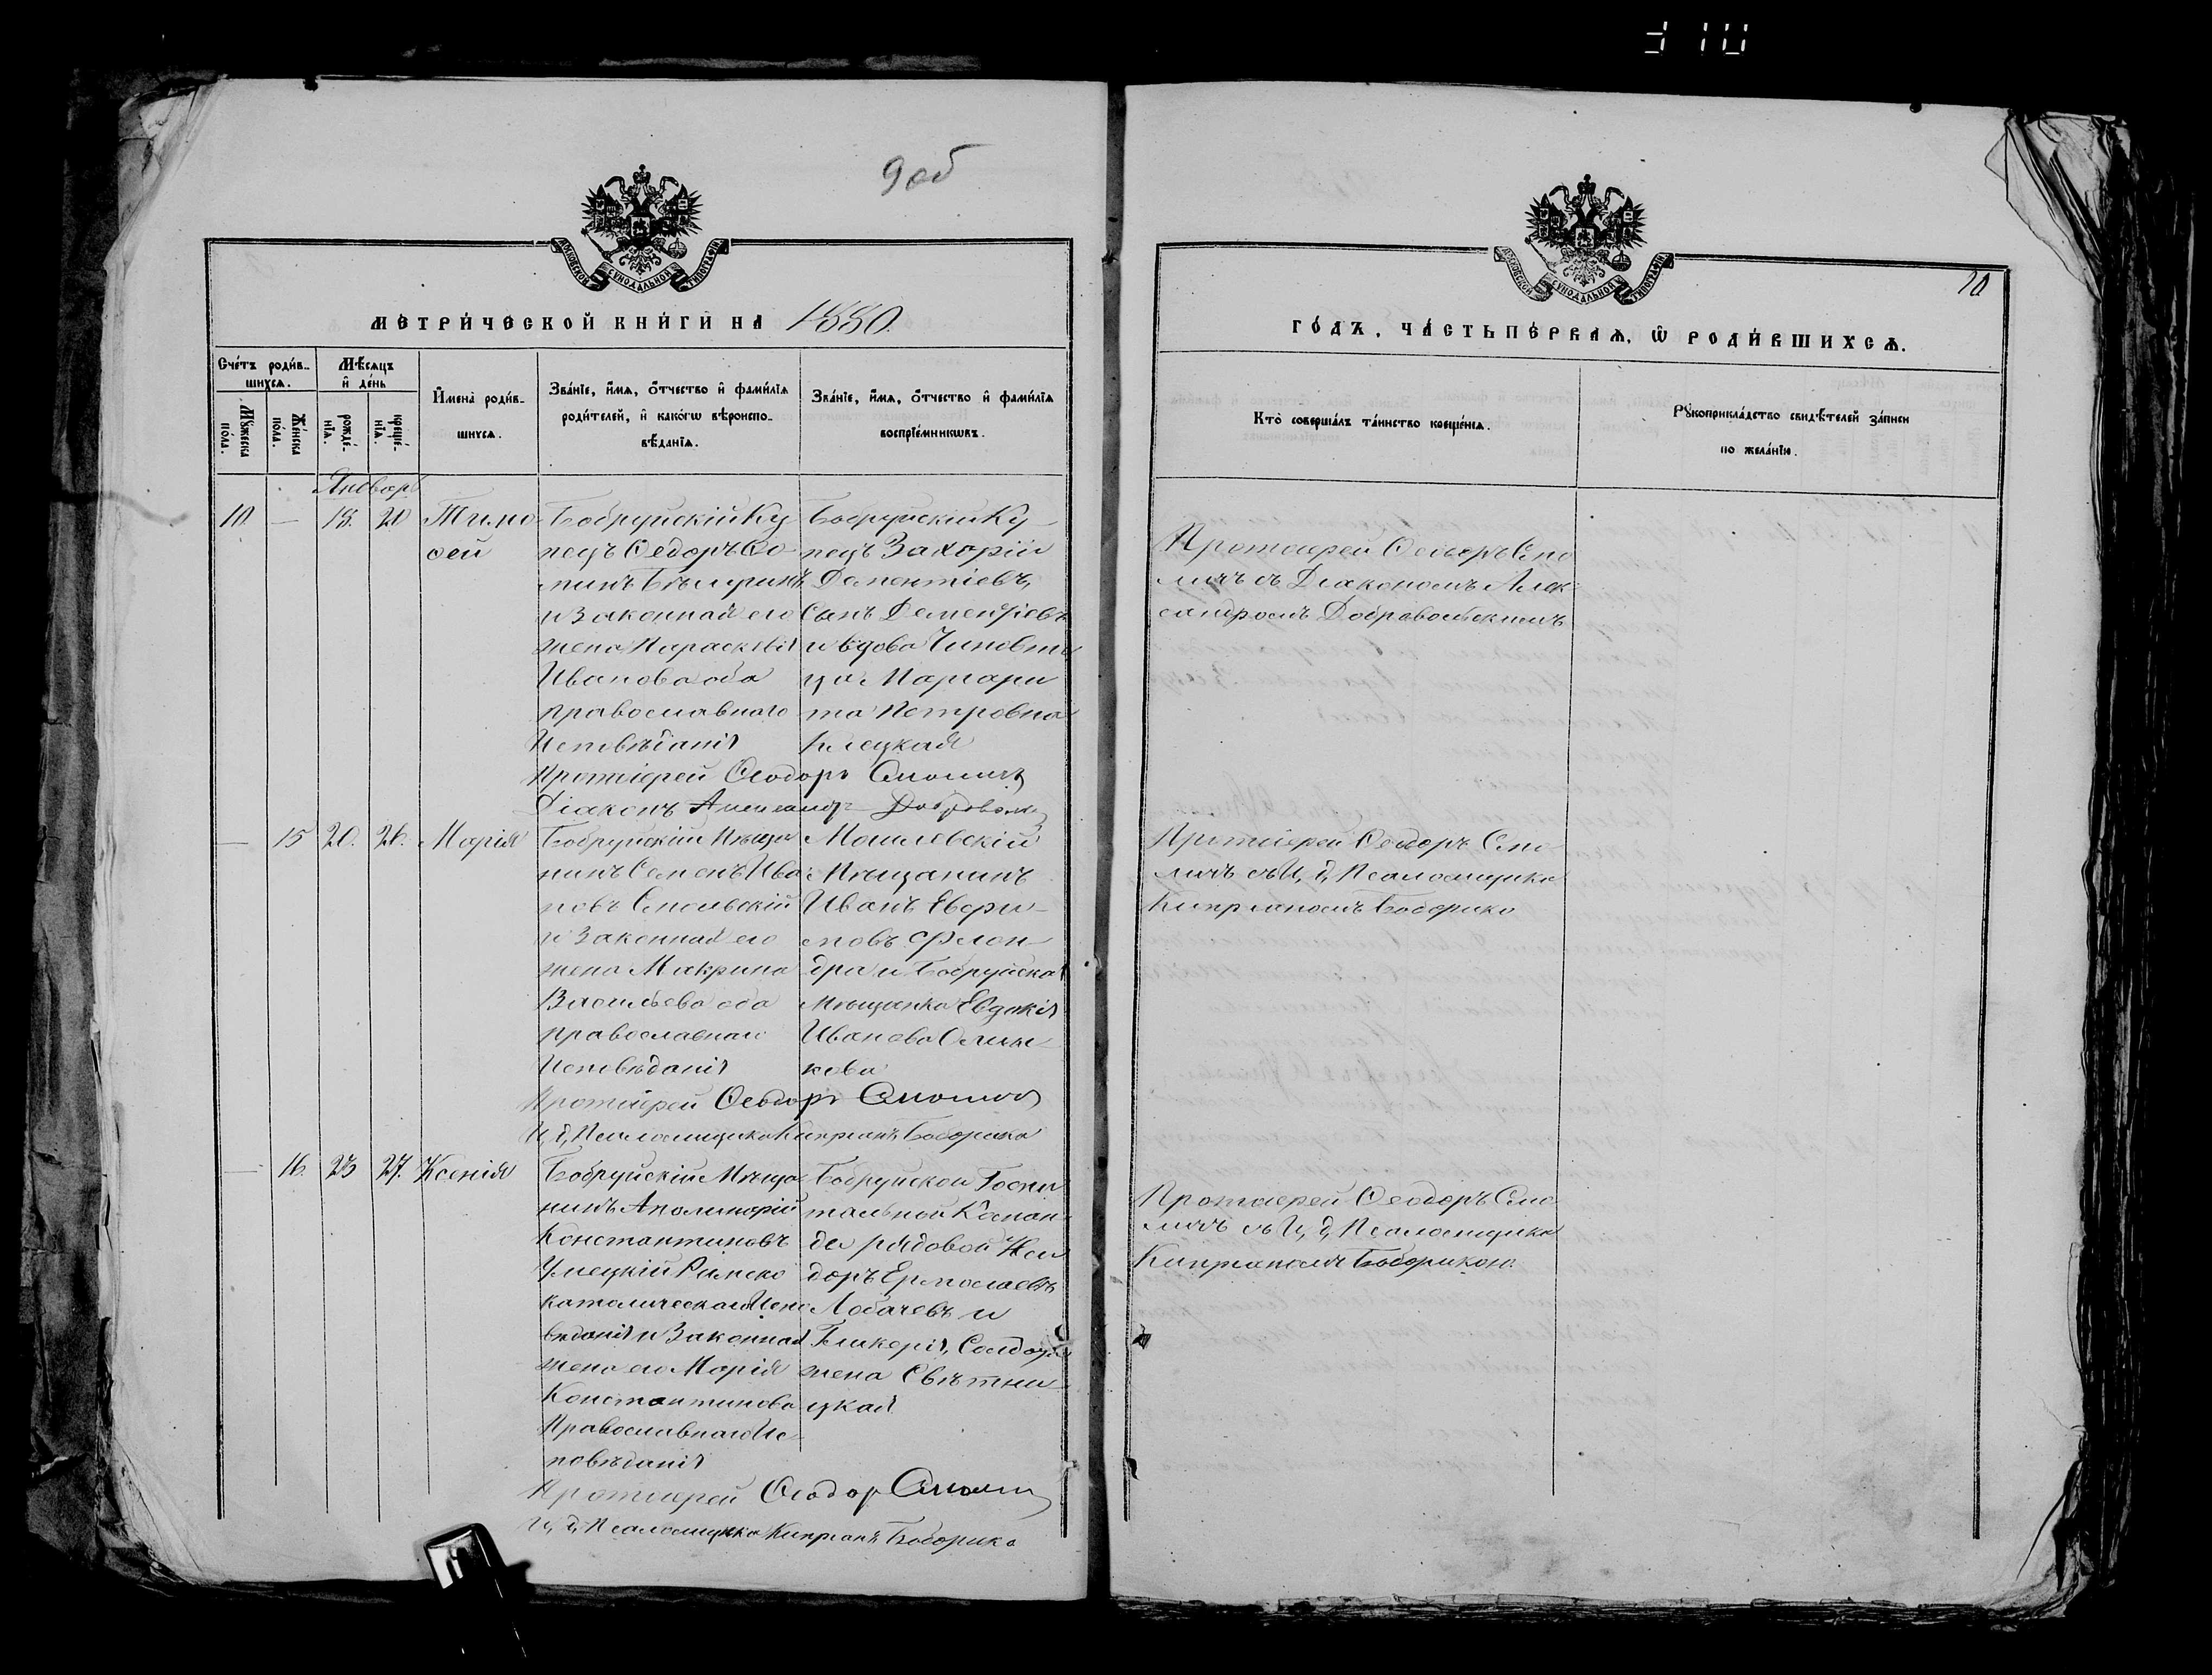 9 об
МОСКОВСКОЙ СѴНОДАЛЬНОЙ ТИПОГРАФІИ
МЕТРИ́ЧЕСКОЙ КНИ́ГИ НА 1880.
Счéтъ роди́в-
шихсѧ.
Мѣ́сяцъ
и҆ де́нь
Мꙋ́жеска по́ла.
Же́нска по́ла.
рожде́-нїѧ.
креще́-нїѧ.
И҆мена̀ роди́в-
шихсѧ.
Зва́нїе, и҆́мѧ, ѻ҆́тчество и҆ фами́лїѧ
роди́телей, и҆ како́гѡ вѣроиспо-
вѣ́данїѧ.
Зва́нїе, и҆́мѧ, ѻ҆́тчество и҆ фами́лїѧ
воспрїе́мникѡвъ.
Январь
10. — 18. 20 Тимо
фей
Бобруйскій Ку
пецъ Ѳедоръ Ѳо
минъ
и Законная его
жена Параскевія
Иванова оба
православнаго
Исповѣданія
Бобруйскій Ку
пецъ Захорій
Дементіевъ,
Сынъ Дементіевъ
и вдова Чиновни
ца Маргари
та Петровна
Клецкая
Протоіерей Ѳеодоръ Смоличъ
Діаконъ Александръ Добровольс
— 15 20. 26. Марія
Бобруйскій Мѣща
нинъ Семенъ Ива
новъ Смольскій
и Законная его
жена Макрина
Васильева оба
православнаго
Исповѣданія
Могилевскій
Мѣщанинъ
Иванъ
новъ
дра и Бобруйская
мѣщанка Евдокія
Иванова
кова
Протоіерей Ѳеодоръ Смоличъ
И, д, Псаломщика Кипріанъ Боборико
— 16. 23 27. Ксенія
Бобруйскій Мѣща
нинъ Аполинарій
Константиновъ
Улецкій Римско
католическаго Испо
вѣданія и Законная
жена его Марія
Константинова
Православнаго Ис
повѣданія
Бобруйской Госпи
тальной Коман
ды рядовой Иси
доръ Ермолаевъ
Лобачевъ и
Гликерія, Солдатс
жена Свѣтни
цкая
Протоіерей Ѳеодоръ Смоличъ
И, д, Псаломщика Кипріанъ Боборико
10
МОСКОВСКОЙ СѴНОДАЛЬНОЙ ТИПОГРАФІИ
ГО́ДЪ, ЧА́СТЬ ПЕ́РВАѦ, Ѡ҆ РОДИ́ВШИХСѦ.
Кто̀ соверша́лъ та́инство креще́нїѧ.
Рꙋкоприкла́дство свидѣ́телей за́писи
по жела́нїю.
Протоіерей Ѳеодоръ Смо
личъ съ Діакономъ Алек
сандромъ Добровольскимъ
Протоіерей Ѳеодоръ Смо
личъ съ И, д, Псаломщика
Кипріаномъ Боборико
Протоіерей Ѳеодоръ Смо
личъ съ И, д, Псаломщика
Кипріаномъ Боборикою.